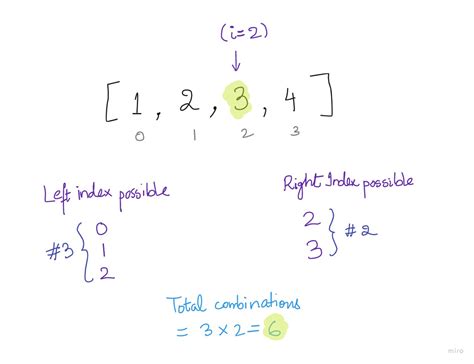 (i=2)
↓
[1, 2, 3, 4]
0 1 2 3
Left index possible
#3 { 0
1
2
Right Index possible
2
3 } #2
Total combinations
= 3 × 2 = 6
miro